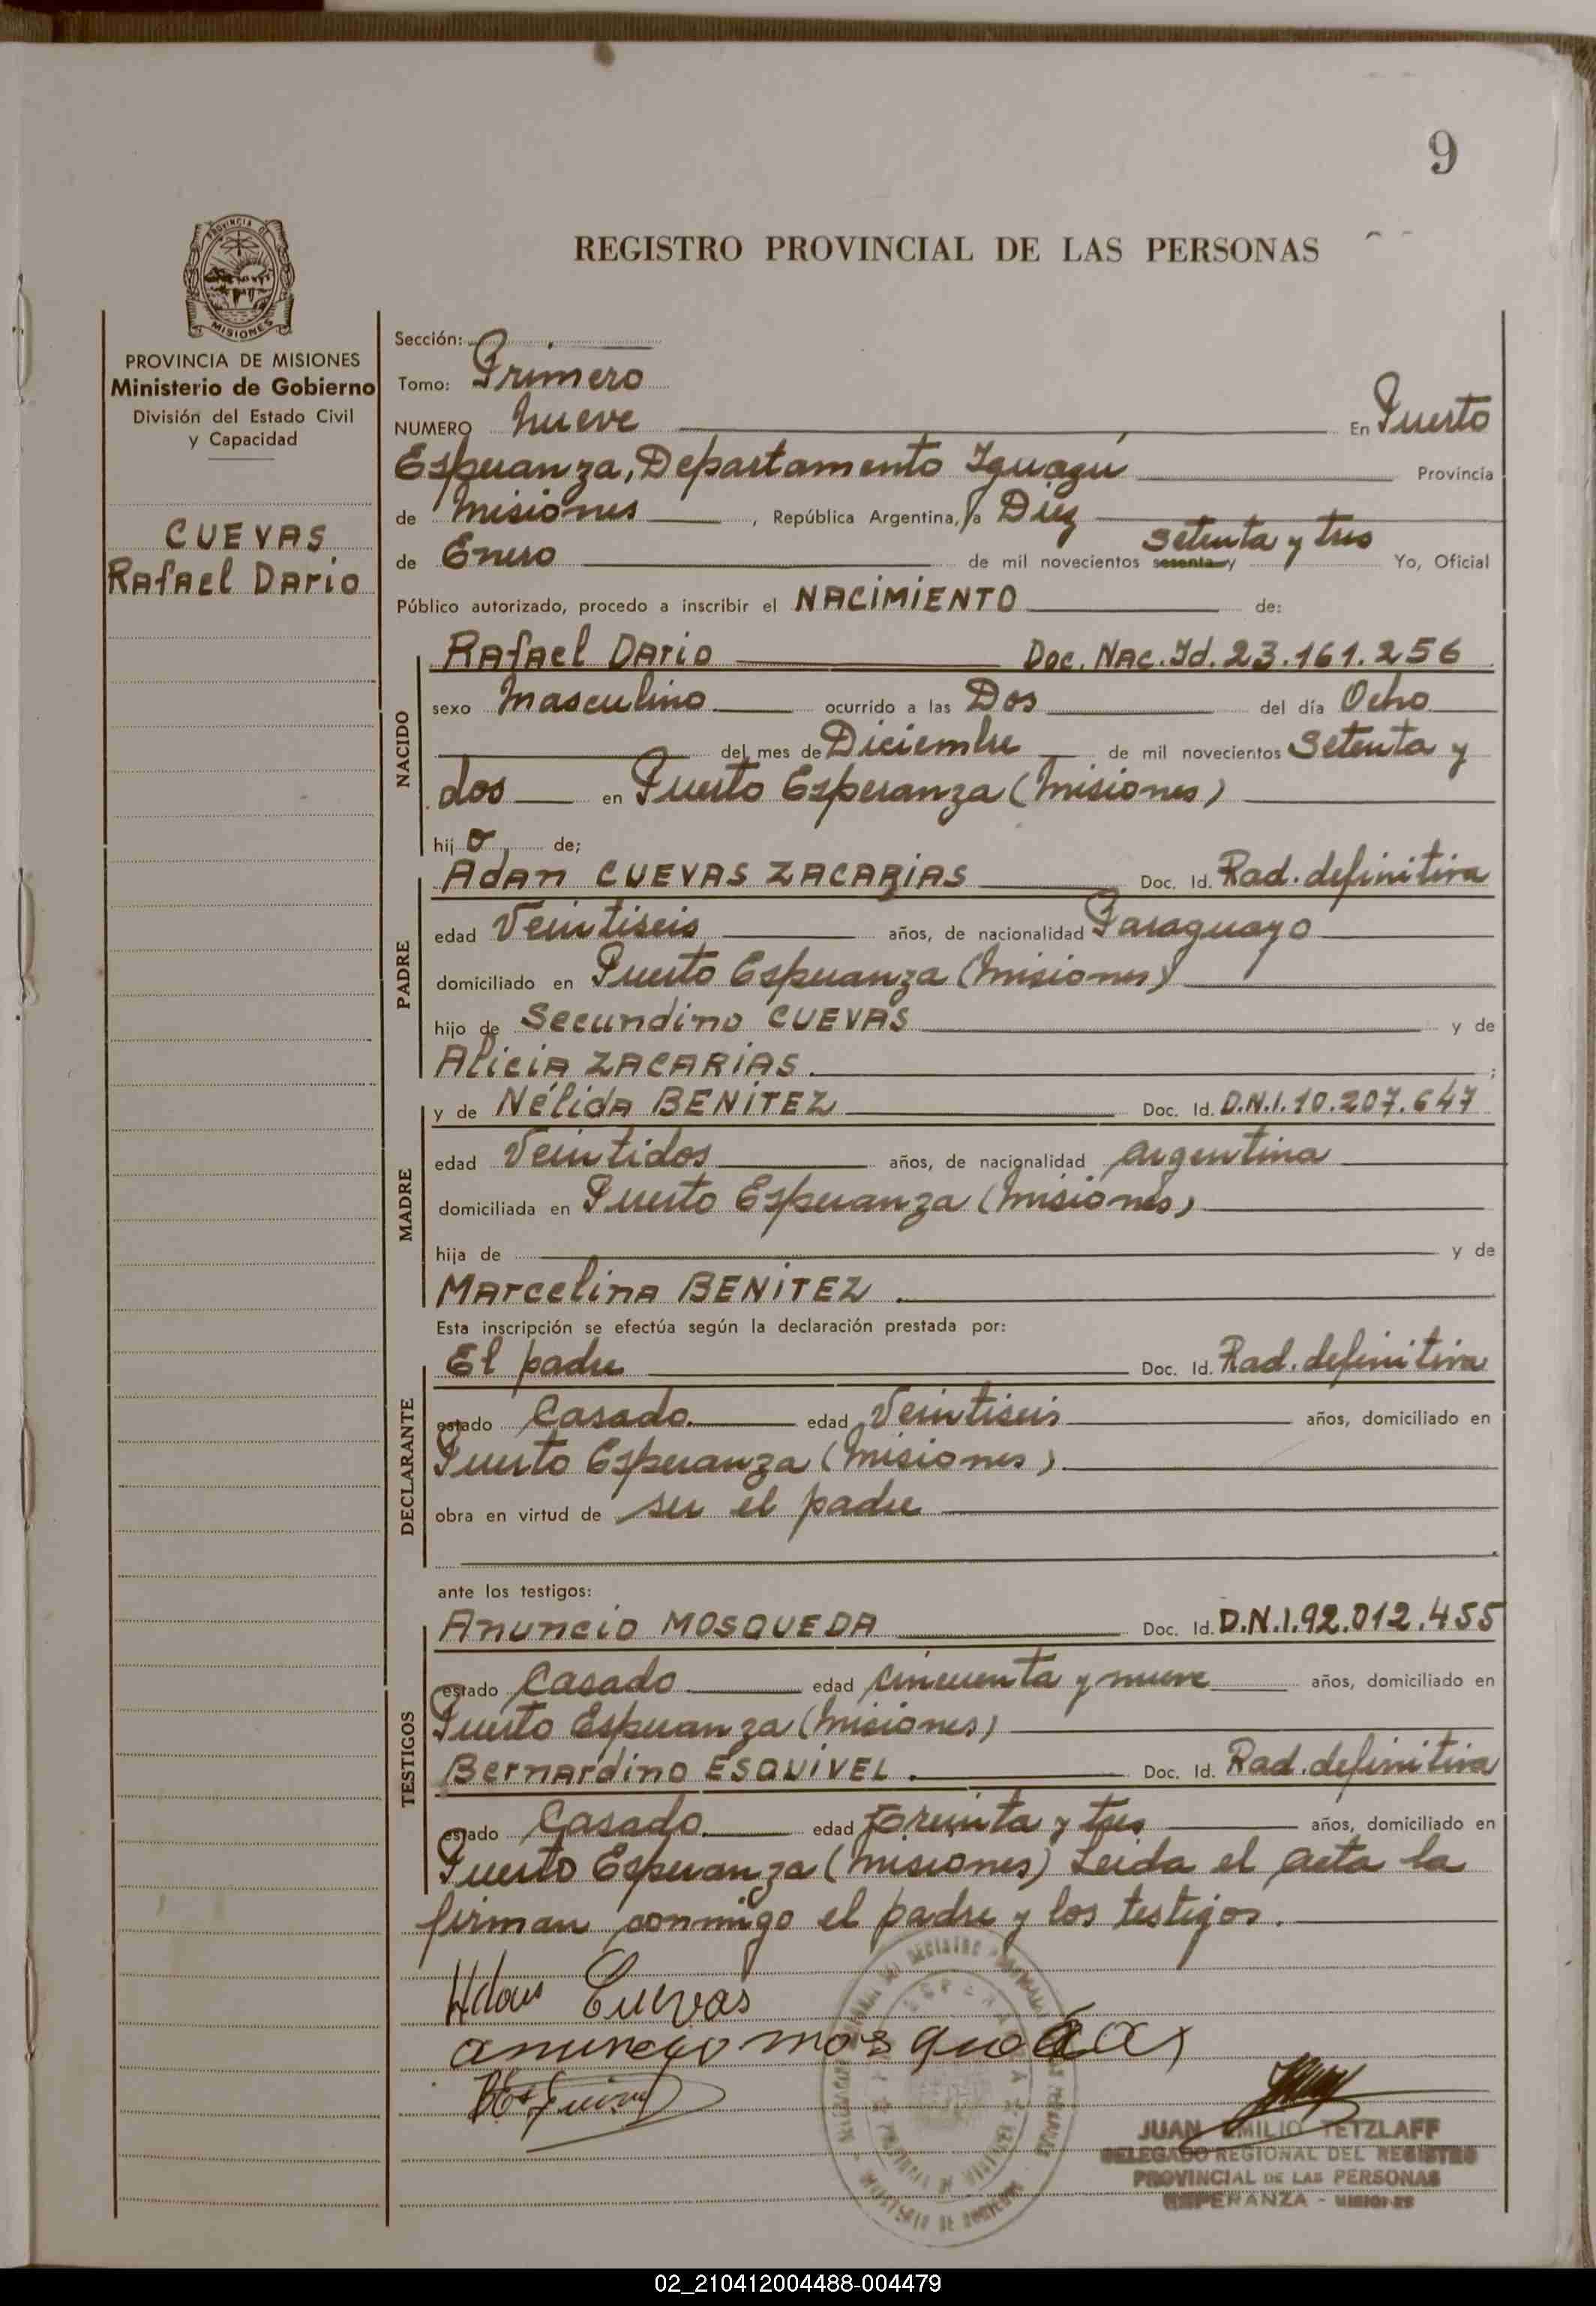 9
REGISTRO PROVINCIAL DE LAS PERSONAS
PROVINCIA DE
MISIONES
PROVINCIA DE MISIONES
Ministerio de Gobierno
División del Estado Civil
y Capacidad
CUEVAS
Rafael Dario
Sección:
Tomo: Primero
NUMERO nueve En Puerto
Esperanza, Departamento Iguazú Provincia
de Misiones, República Argentina, a Diez
de Enero de mil novecientos sesenta y setenta y tres Yo, Oficial
Público autorizado, procedo a inscribir el NACIMIENTO de:
NACIDO
Rafael Dario Doc. Nac. Id. 23.161.256
sexo Masculino ocurrido a las Dos del día Ocho
del mes de Diciembre de mil novecientos Setenta y
dos en Puerto Esperanza (Misiones)
hijo de;
PADRE
Adan CUEVAS ZACARIAS Doc. Id. Rad. definitiva
edad Veintiseis años, de nacionalidad Paraguayo
domiciliado en Puerto Esperanza (Misiones)
hijo de Secundino CUEVAS y de
Alicia ZACARIAS. ;
MADRE
y de Nélida BENITEZ Doc. Id. D.N.I. 10.207.647
edad Veintidos años, de nacionalidad argentina
domiciliada en Puerto Esperanza (Misiones)
hija de y de
Marcelina BENITEZ.
Esta inscripción se efectúa según la declaración prestada por:
DECLARANTE
El padre Doc. Id. Rad. definitiva
estado Casado. edad Veintiseis años, domiciliado en
Puerto Esperanza (Misiones)
obra en virtud de ser el padre
ante los testigos:
TESTIGOS
Anuncio MOSQUEDA Doc. Id. D.N.I. 92.012.455
estado Casado edad Cincuenta y nueve años, domiciliado en
Puerto Esperanza (Misiones)
Bernardino ESQUIVEL. Doc. Id. Rad. definitiva
estado Casado. edad Treinta y tres años, domiciliado en
Puerto Esperanza (Misiones) Leida el acta la
firman conmigo el padre y los testigos.
Adan Cuevas
JUAN EMILIO TETZLAFF
DELEGADO REGIONAL DEL REGISTRO
PROVINCIAL DE LAS PERSONAS
ESPERANZA - MISIONES
02_210412004488-004479